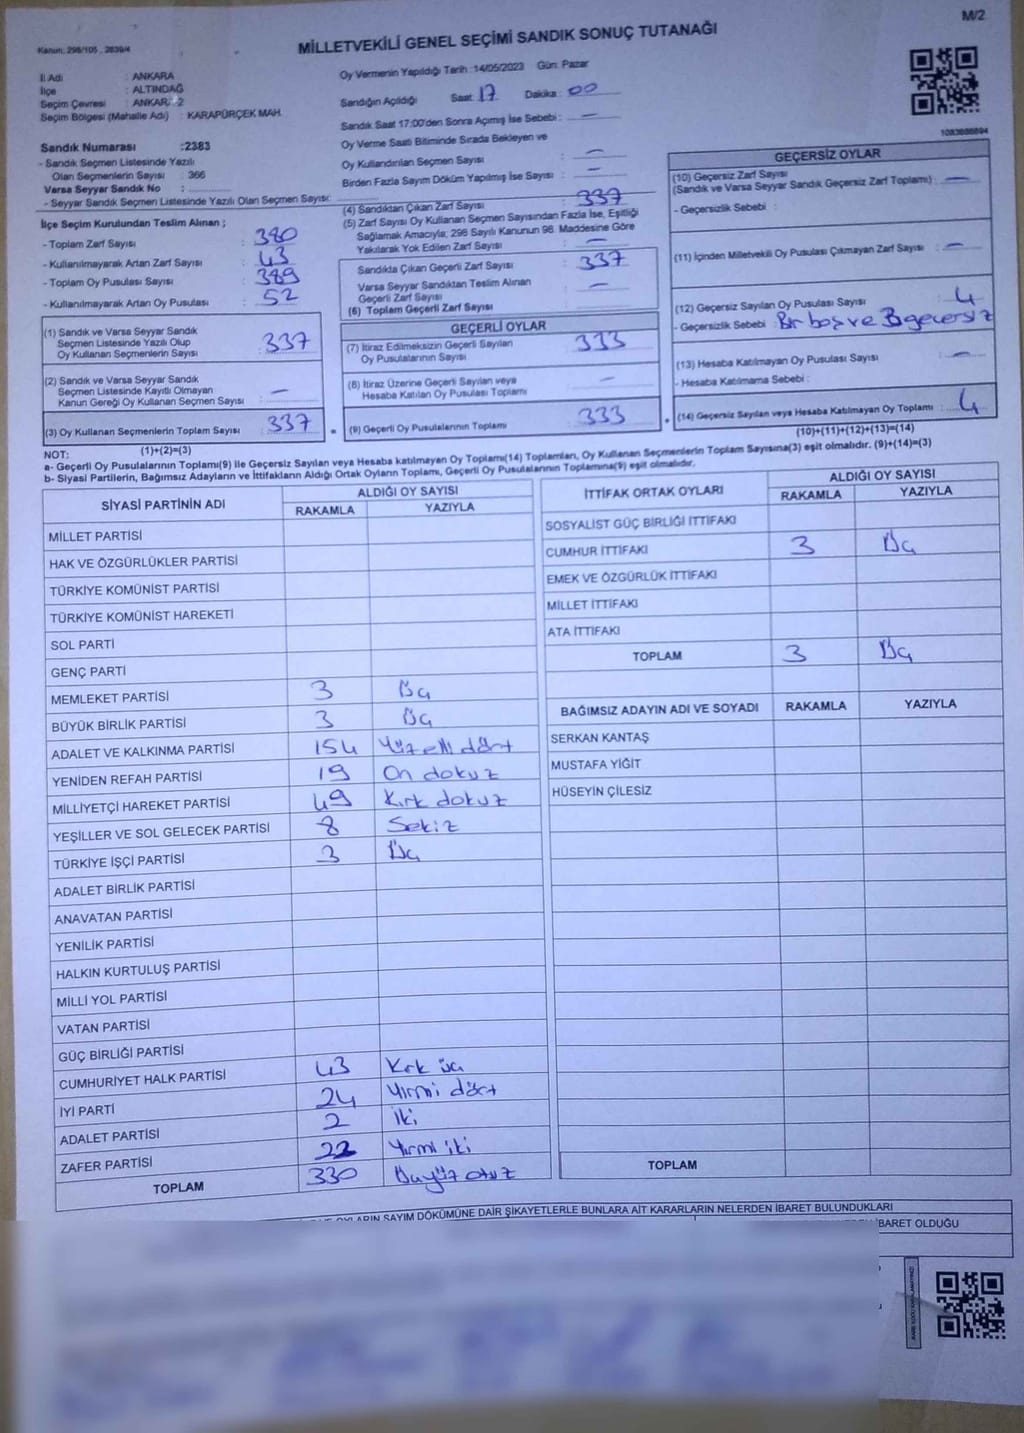 M/2
Kanun, 298/105 , 2839/4
MİLLETVEKİLİ GENEL SEÇİMİ SANDIK SONUÇ TUTANAĞI
İl Adı : ANKARA
İlçe : ALTINDAĞ
Seçim Çevresi : ANKARA 2
Seçim Bölgesi (Mahalle Adı) : KARAPÜRÇEK MAH.
Sandık Numarası :2383
- Sandık Seçmen Listesinde Yazılı
Olan Seçmenlerin Sayısı : 366
Varsa Seyyar Sandık No :
- Seyyar Sandık Seçmen Listesinde Yazılı Olan Seçmen Sayısı:
Oy Vermenin Yapıldığı Tarih :14/05/2023 Gün: Pazar
Sandığın Açıldığı Saat: 17 Dakika : 00
Sandık Saat 17:00'den Sonra Açımış İse Sebebi : —
Oy Verme Saati Bitiminde Sırada Bekleyen ve
Oy Kullandırılan Seçmen Sayısı : —
Birden Fazla Sayım Döküm Yapılmış İse Sayısı : —
İlçe Seçim Kurulundan Teslim Alınan ;
- Toplam Zarf Sayısı : 380
- Kullanılmayarak Artan Zarf Sayısı : 43
- Toplam Oy Pusulası Sayısı : 389
- Kullanılmayarak Artan Oy Pusulası : 52
(1) Sandık ve Varsa Seyyar Sandık
Seçmen Listesinde Yazılı Olup
Oy Kullanan Seçmenlerin Sayısı : 337
(2) Sandık ve Varsa Seyyar Sandık
Seçmen Listesinde Kayıtlı Olmayan
Kanun Gereği Oy Kullanan Seçmen Sayısı : —
(3) Oy Kullanan Seçmenlerin Toplam Sayısı : 337
(1)+(2)=(3)
(4) Sandıktan Çıkan Zarf Sayısı : 337
(5) Zarf Sayısı Oy Kullanan Seçmen Sayısından Fazla İse, Eşitliği
Sağlamak Amacıyla; 298 Sayılı Kanunun 98. Maddesine Göre
Yakılarak Yok Edilen Zarf Sayısı : —
Sandıkta Çıkan Geçerli Zarf Sayısı : 337
Varsa Seyyar Sandıktan Teslim Alınan
Geçerli Zarf Sayısı : —
(6) Toplam Geçerli Zarf Sayısı :
GEÇERLİ OYLAR
(7) İtiraz Edilmeksizin Geçerli Sayılan
Oy Pusulalarının Sayısı : 333
(8) İtiraz Üzerine Geçerli Sayılan veya
Hesaba Katılan Oy Pusulası Toplamı : —
= (9) Geçerli Oy Pusulalarının Toplamı : 333
1083686894
GEÇERSİZ OYLAR
(10) Geçersiz Zarf Sayısı
(Sandık ve Varsa Seyyar Sandık Geçersiz Zarf Toplamı) : —
- Geçersizlik Sebebi :
(11) İçinden Milletvekili Oy Pusulası Çıkmayan Zarf Sayısı : —
(12) Geçersiz Sayılan Oy Pusulası Sayısı : 4
- Geçersizlik Sebebi : Bir boş ve 3 geçersiz
(13) Hesaba Katılmayan Oy Pusulası Sayısı : —
- Hesaba Katılmama Sebebi :
+ (14) Geçersiz Sayılan veya Hesaba Katılmayan Oy Toplamı : 4
(10)+(11)+(12)+(13)=(14)
NOT:
a- Geçerli Oy Pusulalarının Toplamı(9) ile Geçersiz Sayılan veya Hesaba katılmayan Oy Toplamı(14) Toplamları, Oy Kullanan Seçmenlerin Toplam Sayısına(3) eşit olmalıdır. (9)+(14)=(3)
b- Siyasi Partilerin, Bağımsız Adayların ve İttifakların Aldığı Ortak Oyların Toplamı, Geçerli Oy Pusulalarının Toplamına(9) eşit olmalıdır.
SİYASİ PARTİNİN ADI ALDIĞI OY SAYISI
RAKAMLA YAZIYLA
MİLLET PARTİSİ
HAK VE ÖZGÜRLÜKLER PARTİSİ
TÜRKİYE KOMÜNİST PARTİSİ
TÜRKİYE KOMÜNİST HAREKETİ
SOL PARTİ
GENÇ PARTİ
MEMLEKET PARTİSİ 3 Üç
BÜYÜK BİRLİK PARTİSİ 3 Üç
ADALET VE KALKINMA PARTİSİ 154 Yüz elli dört
YENİDEN REFAH PARTİSİ 19 On dokuz
MİLLİYETÇİ HAREKET PARTİSİ 49 Kırk dokuz
YEŞİLLER VE SOL GELECEK PARTİSİ 8 Sekiz
TÜRKİYE İŞÇİ PARTİSİ 3 Üç
ADALET BİRLİK PARTİSİ
ANAVATAN PARTİSİ
YENİLİK PARTİSİ
HALKIN KURTULUŞ PARTİSİ
MİLLİ YOL PARTİSİ
VATAN PARTİSİ
GÜÇ BİRLİĞİ PARTİSİ
CUMHURİYET HALK PARTİSİ 43 Kırk üç
İYİ PARTİ 24 Yirmi dört
ADALET PARTİSİ 2 İki
ZAFER PARTİSİ 22 Yirmi iki
TOPLAM 330 Üçyüz otuz
İTTİFAK ORTAK OYLARI ALDIĞI OY SAYISI
RAKAMLA YAZIYLA
SOSYALİST GÜÇ BİRLİĞİ İTTİFAKI
CUMHUR İTTİFAKI 3 Üç
EMEK VE ÖZGÜRLÜK İTTİFAKI
MİLLET İTTİFAKI
ATA İTTİFAKI
TOPLAM 3 Üç
BAĞIMSIZ ADAYIN ADI VE SOYADI RAKAMLA YAZIYLA
SERKAN KANTAŞ
MUSTAFA YİĞİT
HÜSEYİN ÇİLESİZ
TOPLAM
OYLARIN SAYIM DÖKÜMÜNE DAİR ŞİKAYETLERLE BUNLARA AİT KARARLARIN NELERDEN İBARET BULUNDUKLARI
İBARET OLDUĞU